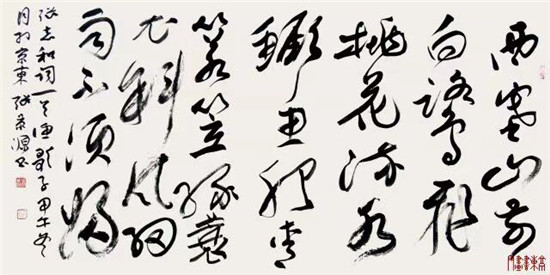 西塞山前
白鹭飞
桃花流水
鳜鱼肥青
箬笠绿蓑
衣斜风细
雨不须归
张志和词一首渔歌子甲午冬
月于京东